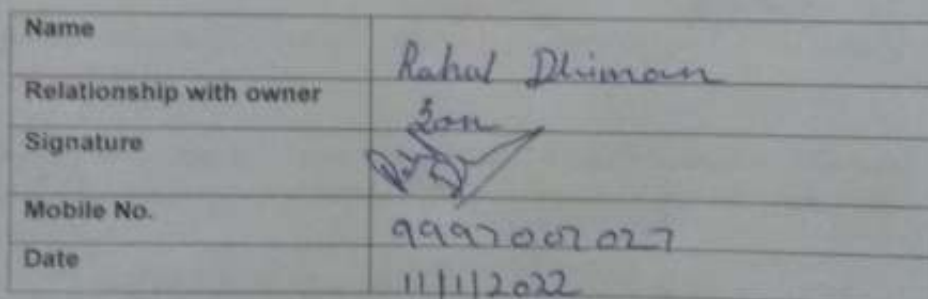 Name Rahul Dhiman
Relationship with owner Son
Signature
Mobile No. 9997007027
Date 11/1/2022